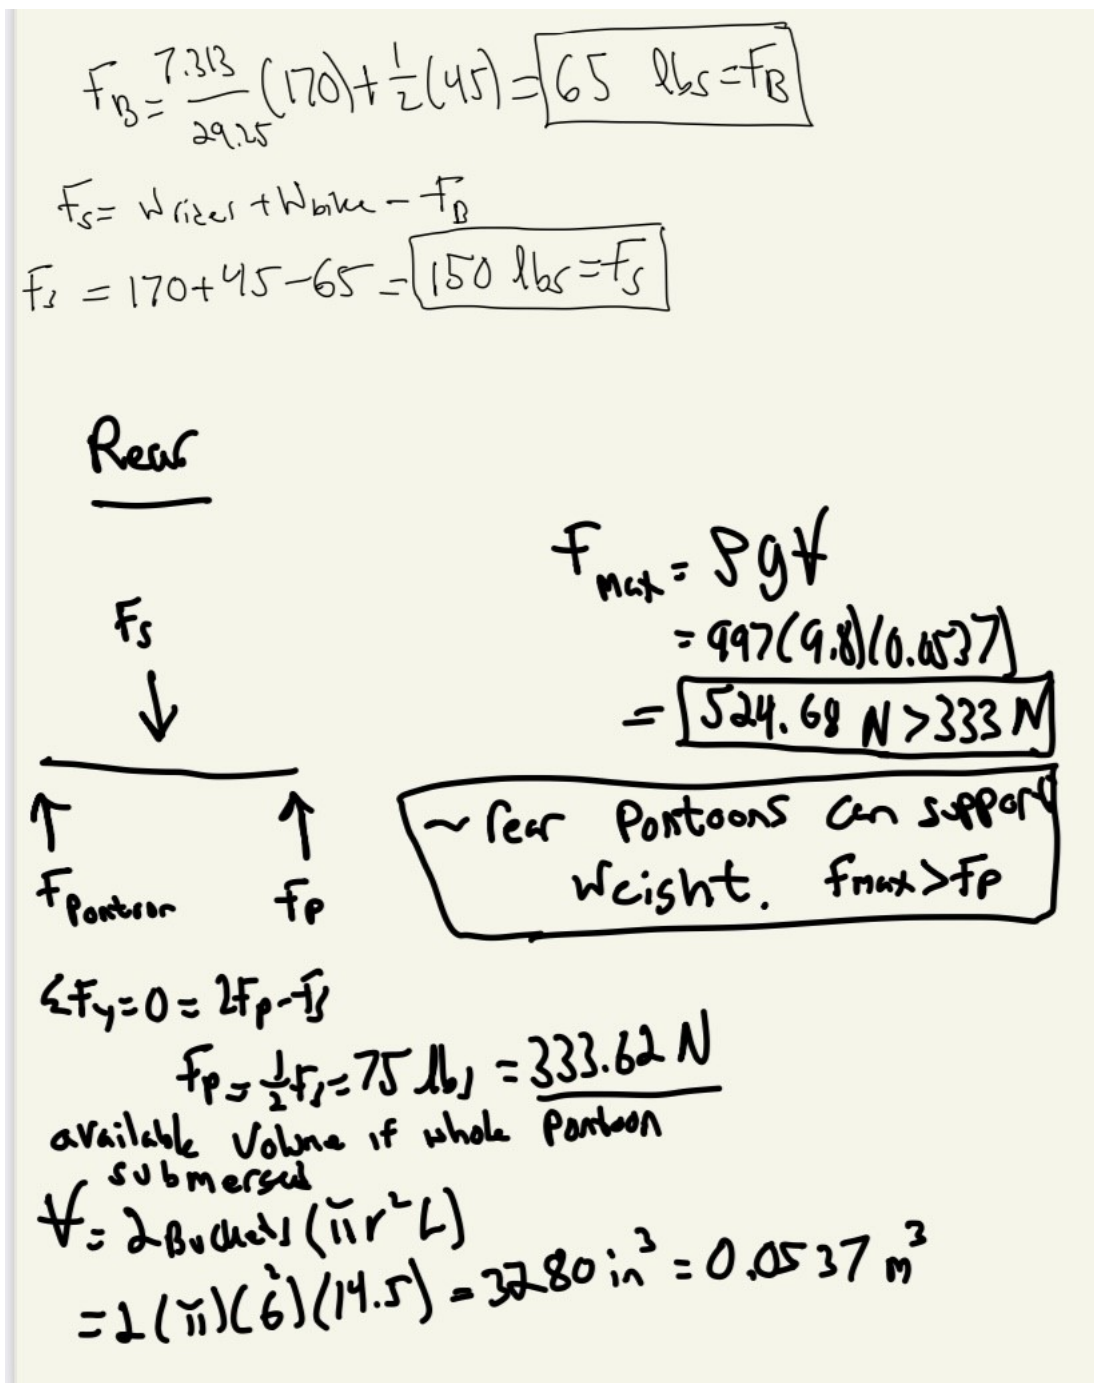 F_B = 7.313/29.25 (170) + 1/2 (45) = 65 lbs = F_B
F_s = W rider + W bike - F_B
F_s = 170 + 45 - 65 = 150 lbs = F_s
Rear
F_max = ρgV
= 997(9.8)(0.0537)
= 524.68 N > 333 N
F_s
~ rear Pontoons can support
weight. Fmax > Fp
F Pontoon F_P
ΣF_y = 0 = 2F_p - F_s
F_p = 1/2 F_s = 75 lbs = 333.62 N
available Volume if whole Pontoon
submersed
V = 2 Buckets (πr²L)
= 2(π)(6²)(14.5) = 3280 in³ = 0.0537 m³